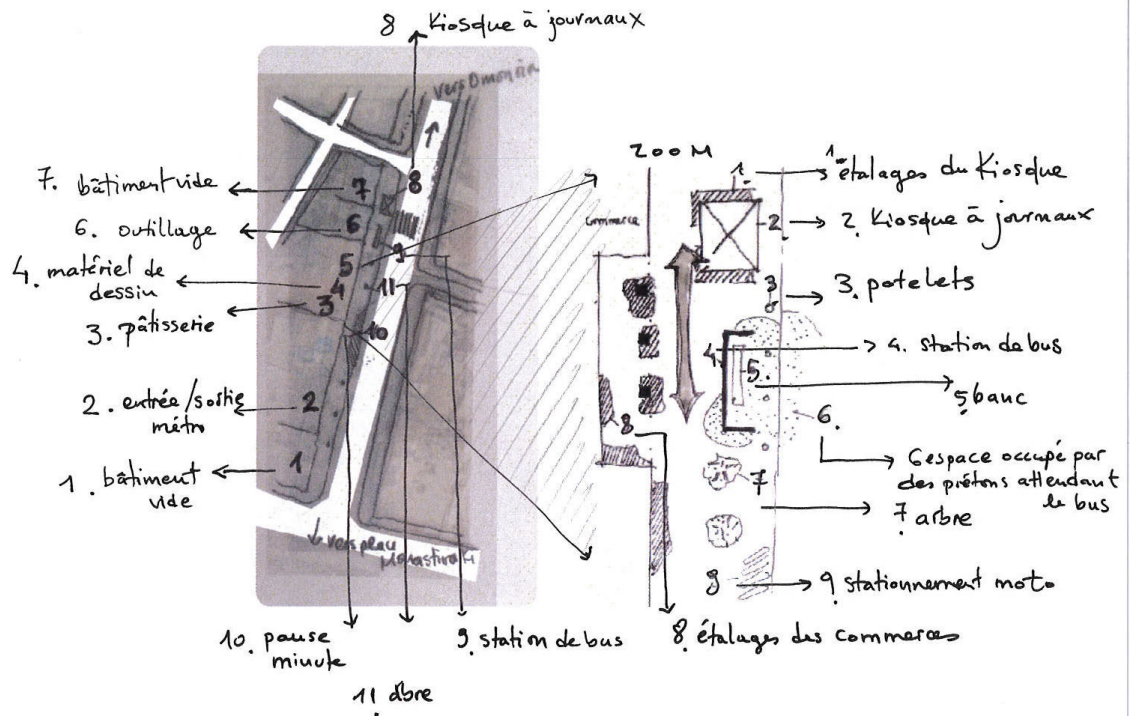 8 Kiosque à journaux
vers Omonia
7. bâtiment vide
6. outillage
4. matériel de
dessin
3. pâtisserie
2. entrée/sortie
métro
1. bâtiment
vide
7
8
6
9
5
4
11
3
10
2
1
vers place
Monastiraki
10. pause
minute
11 arbre
9. station de bus
200 M
commerce
1.
2
3
4
5
6.
7
8
9
1. étalages du Kiosque
2. Kiosque à journaux
3. potelets
4. station de bus
5 banc
6 espace occupé par
des piétons attendant
le bus
7 arbre
9. stationnement moto
8. étalages des commerces